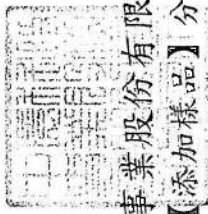 事業股份有限
【添加樣品】分